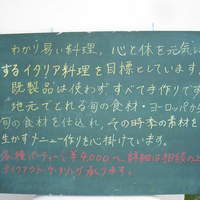 わかり易い料理、心と体を元気に
するイタリア料理を目標としています。
既製品は使わずすべて手作りです
地元でとれる旬の食材・ヨーロッパから
旬の食材を仕入れ、その時季の素材を
生かすメニュー作りを心掛けています。
各種パーティー ¥4,000〜 詳細は相談の上
テイクアウト・ケータリング承ります。